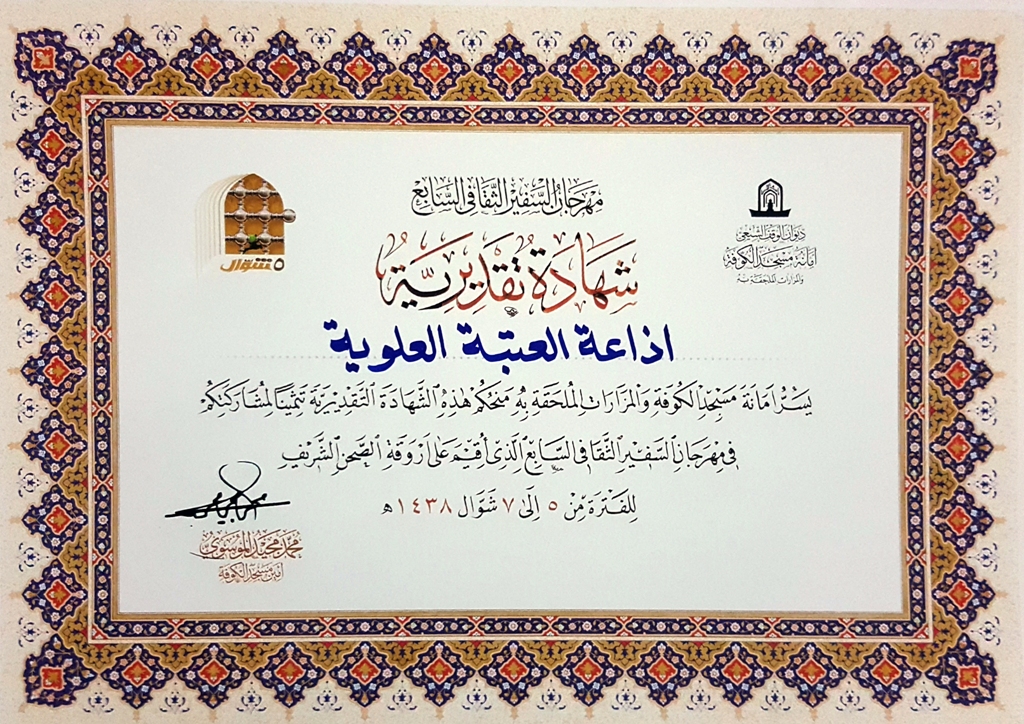 مهرجان السفير الثقافي السابع
ديوان الوقف الشيعي
أمانة مسجد الكوفة
والمزارات الملحقة به
٥ شوال
شهادة تقديرية
اذاعة العتبة العلوية
يسر امانة مسجد الكوفة والمزارات الملحقة به منحكم هذه الشهادة التقديرية تثمينا لمشاركتكم
في مهرجان السفير الثقافي السابع الذي أقيم على أروقة الصحن الشريف
للفترة من ٥ الى ٧ شوال ١٤٣٨ هـ
محمد مجيد الموسوي
أمين مسجد الكوفة